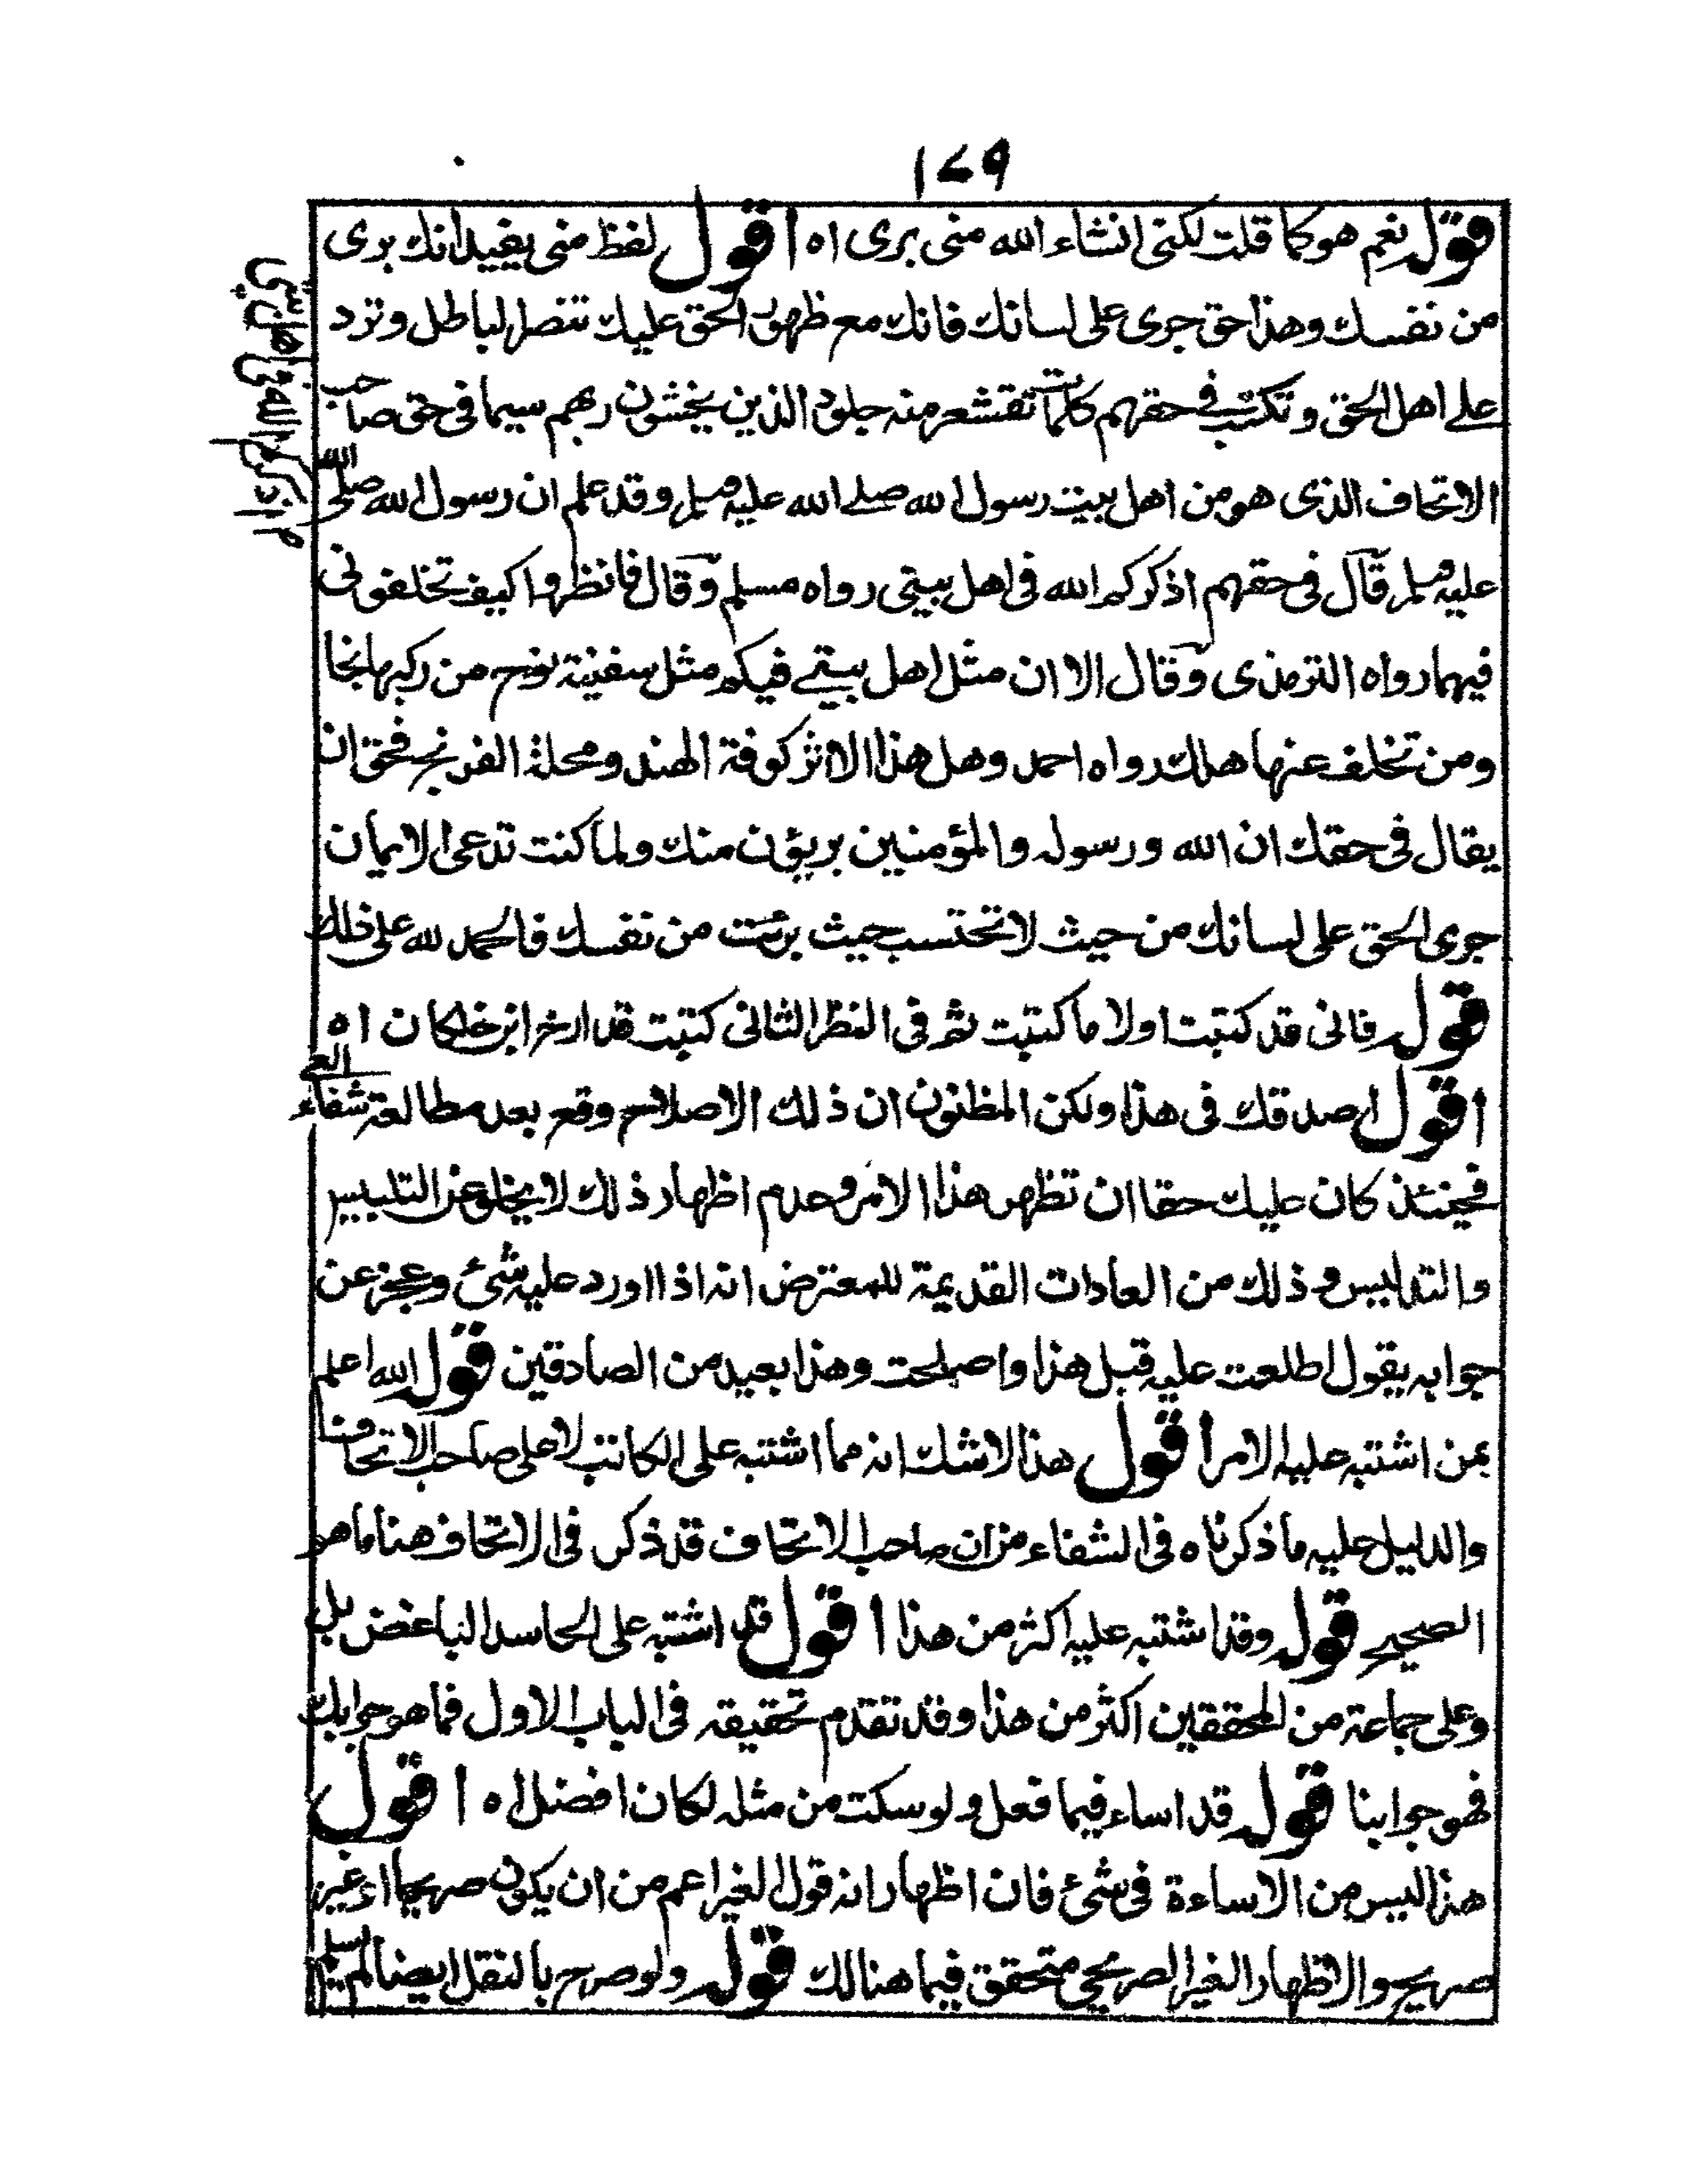 ١٧٩
قوله نعم هو كما قلت لكني انشاء الله مني بري اه اقول لفظ مني يفيد انك بري
من نفسك وهذا حق جرى على لسانك فانك مع ظهور الحق عليك تنصر الباطل وترد
على اهل الحق وتكتب في حقهم كلمات تقشعر منه جلود الذين يخشون ربهم سيما في حق صاحب
الاتحاف الذى هو من اهل بيت رسول الله صلے الله عليه وسلم وقد علم ان رسول الله صلے الله
عليه وسلم قال في حقهم اذكركم الله فى اهل بيتى رواه مسلم وقال فانظروا كيف تخلفونى
فيهما رواه الترمذى وقال الا ان مثل اهل بيتے فيكم مثل سفينة نوح من ركبها نجا
ومن تخلف عنها هلك رواه احمد وهل هذا الا اثر كوفة الهند ومحلة الفرنج فحق ان
يقال فى حقك ان الله ورسوله والمؤمنين بريؤن منك ولما كنت تدعى الايمان
جرى الحق على لسانك من حيث لا تحتسب حيث برئت من نفسك فالحمد لله على ذلك
قوله فانى قد كتبت اولا ما كتبت ثم فى النظر الثانى كتبت قد ارخ ابن خلكان اه
اقول اصدقك فى هذا ولكن المظنون ان ذلك الاصلاح وقع بعد مطالعة شفاء العى
فحينئذ كان عليك حقا ان تظهر هذا الامر وعدم اظهار ذلك لا يخلو عن التلبيس
والتدليس وذلك من العادات القديمة للمعترض انه اذا اورد عليه شئ وعجز عن
جوابه يقول اطلعت عليه قبل هذا واصلحت وهذا بعيد من الصادقين قوله الله اعلم
بمن اشتبه عليه الامر اقول هذا لا شك انه مما اشتبه على الكاتب لا على صاحب الاتحاف
والدليل عليه ما ذكرناه فى الشفاء من ان صاحب الاتحاف قد ذكر فى الاتحاف هنا ما هو
الصحيح قوله وقد اشتبه عليه اكثر من هذا اقول قد اشتبه على الحاسد الباغض بل
وعلى جماعة من المحققين اكثر من هذا وقد تقدم تحقيقه فى الباب الاول فما هو جوابك
فهو جوابنا قوله قد اساء فيما فعل ولو سكت من مثله لكان افضل اه اقول
هذا ليس من الاساءة فى شئ فان اظهار انه قول الغير اعم من ان يكون صريحا او غير
صريح والاظهار الغير الصريحى متحقق فيما هنالك قوله ولو صرح بالنقل ايضا لم يسلم
اذكركم الله فى اهل بيتى